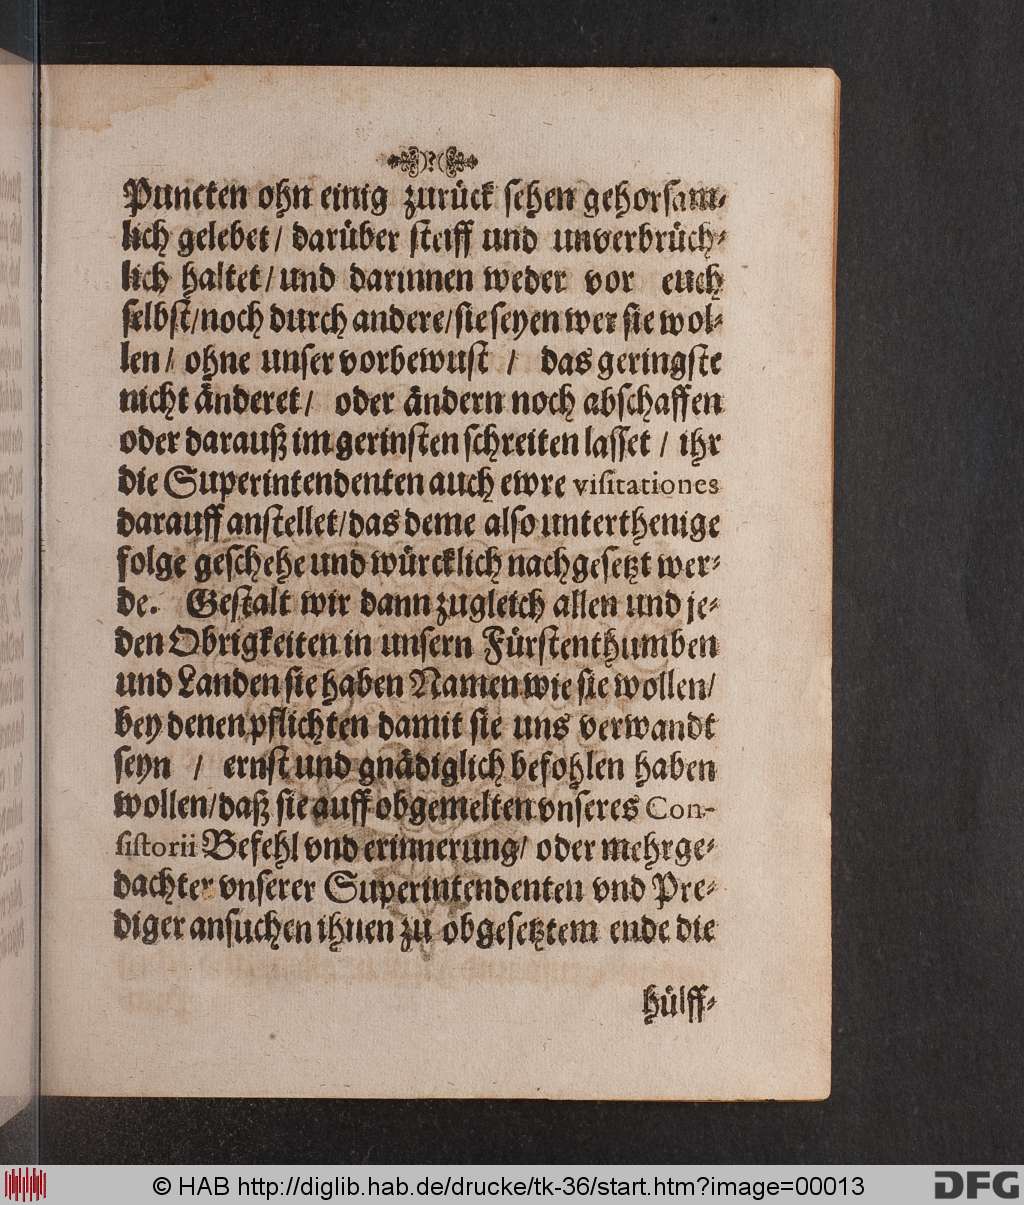 Puncten ohn einig zurück sehen gehorsam-
lich gelebet / darüber steiff und unverbrüch-
lich haltet / und darinnen weder vor euch
selbst / noch durch andere / sie seyen wer sie wol-
len / ohne unser vorbewust / das geringste
nicht änderet / oder ändern noch abschaffen
oder darauß im gerinsten schreiten lasset / ihr
die Superintendenten auch ewre visitationes
darauff anstellet / das deme also unterthenige
folge geschehe und würcklich nachgesetzt wer-
de. Gestalt wir dann zugleich allen und je-
den Obrigkeiten in unsern Fürstenthumben
und Landen sie haben Namen wie sie wollen /
bey denen pflichten damit sie uns verwandt
seyn / ernst und gnädiglich befohlen haben
wollen / daß sie auff obgemelten vnseres Con-
sistorii Befehl vnd erinnerung / oder mehrge-
dachter vnserer Superintendenten vnd Pre-
diger ansuchen ihnen zu obgesetztem ende die
hülff-
© HAB http://diglib.hab.de/drucke/tk-36/start.htm?image=00013
DFG